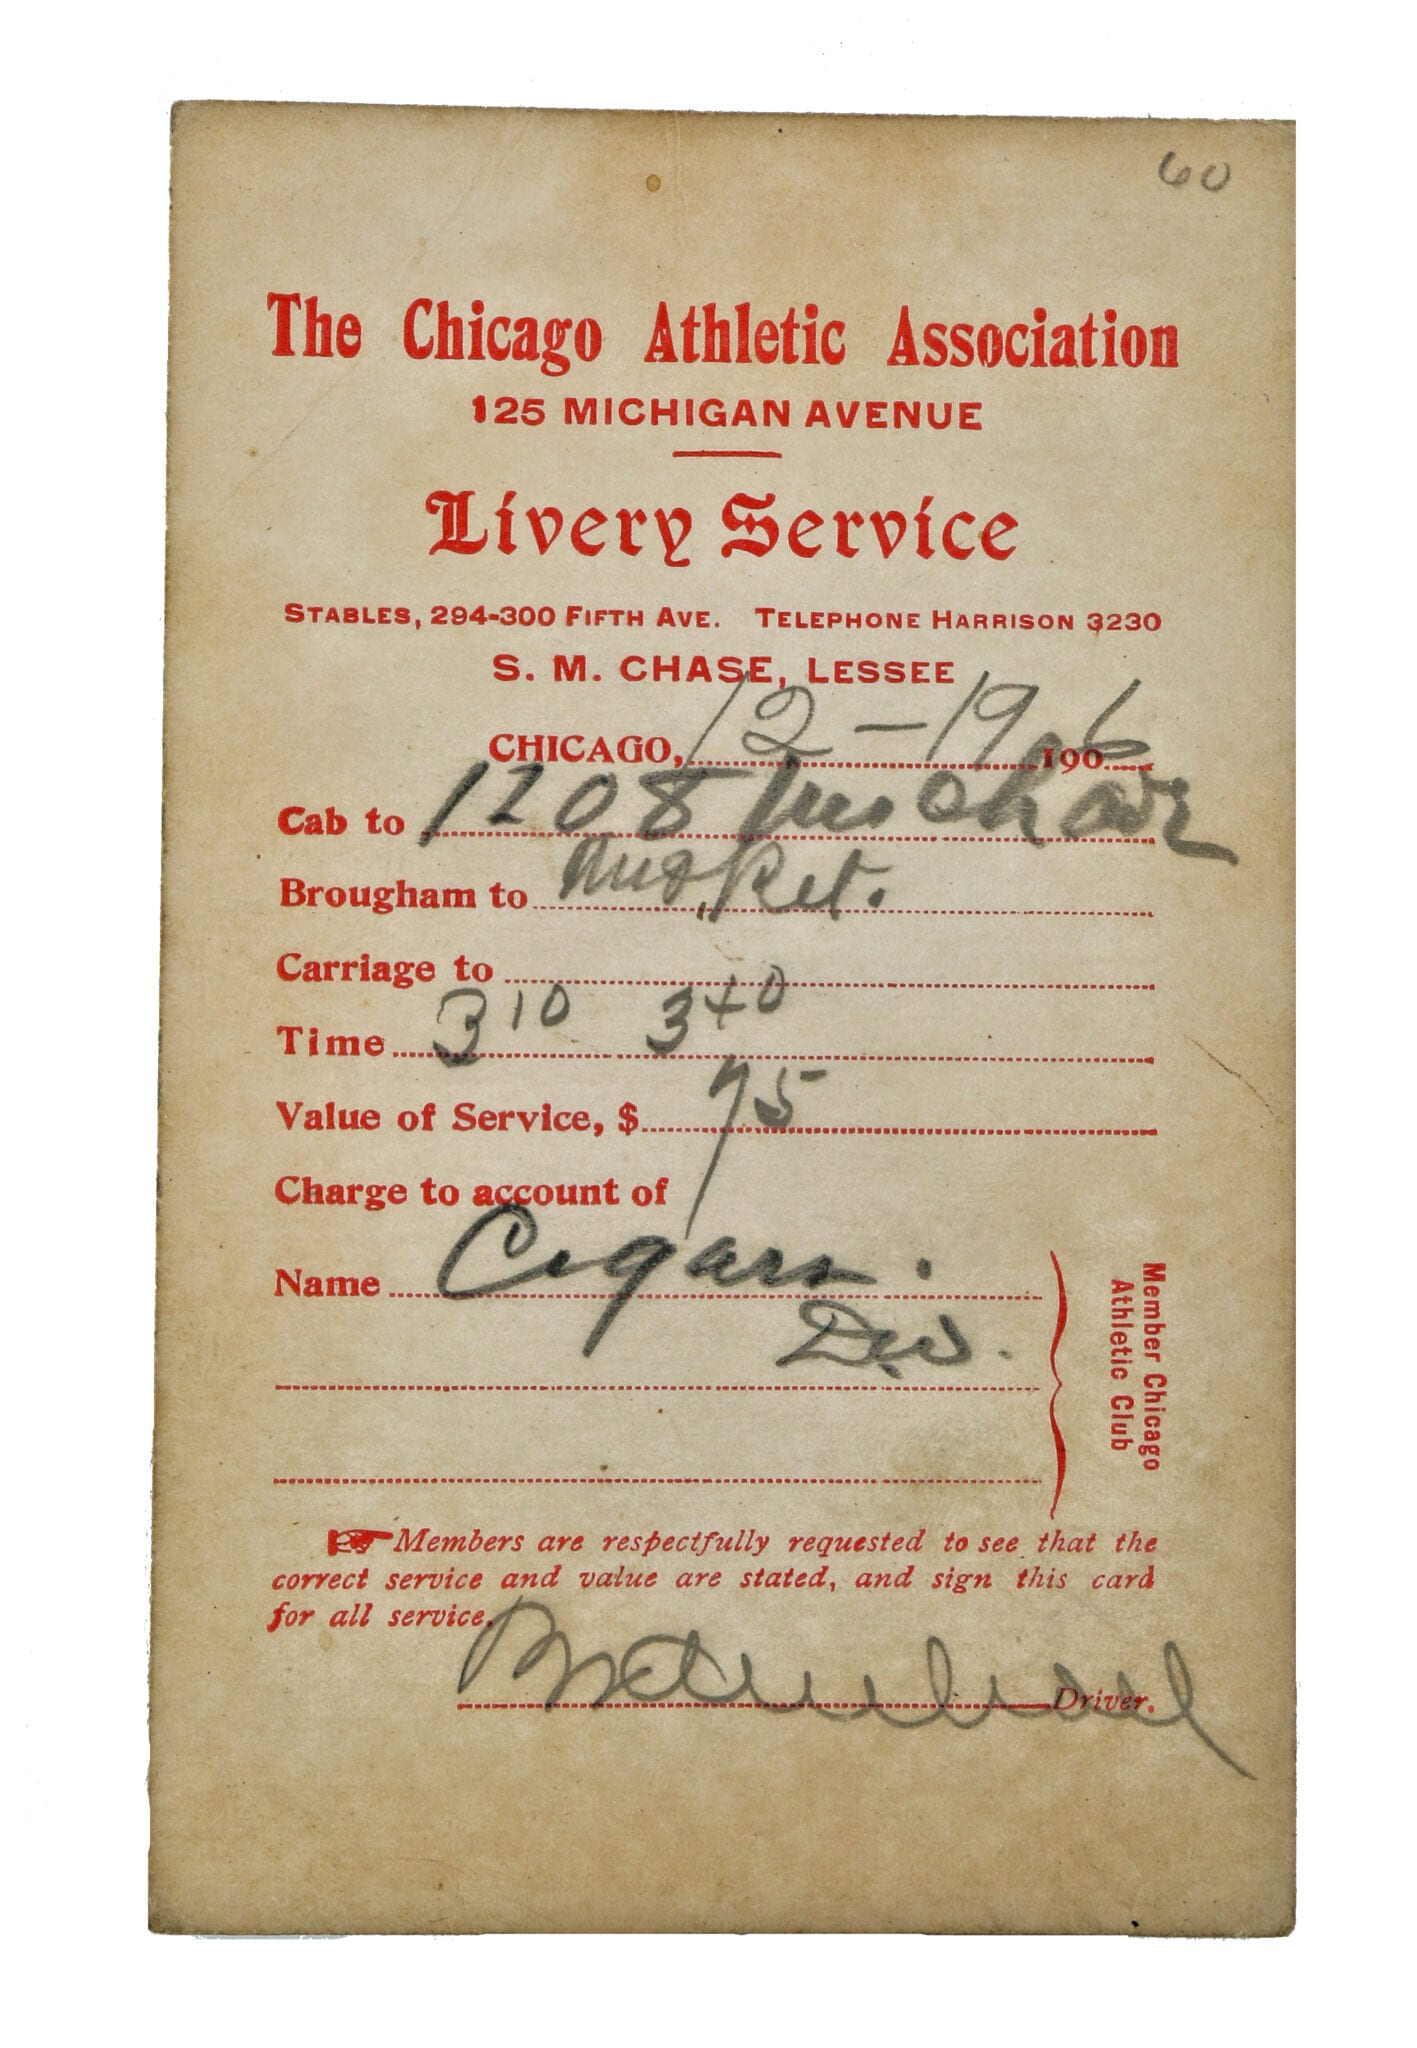 60
The Chicago Athletic Association
125 MICHIGAN AVENUE
Livery Service
STABLES, 294-300 FIFTH AVE. TELEPHONE HARRISON 3230
S. M. CHASE, LESSEE
CHICAGO, 12-19 1906
Cab to 1208
Brougham to
Carriage to
Time 3 10 3 40
Value of Service, $ 75
Charge to account of
Name Cigars.
Div.
Member Chicago
Athletic Club
Members are respectfully requested to see that the
correct service and value are stated, and sign this card
for all service.
Driver.